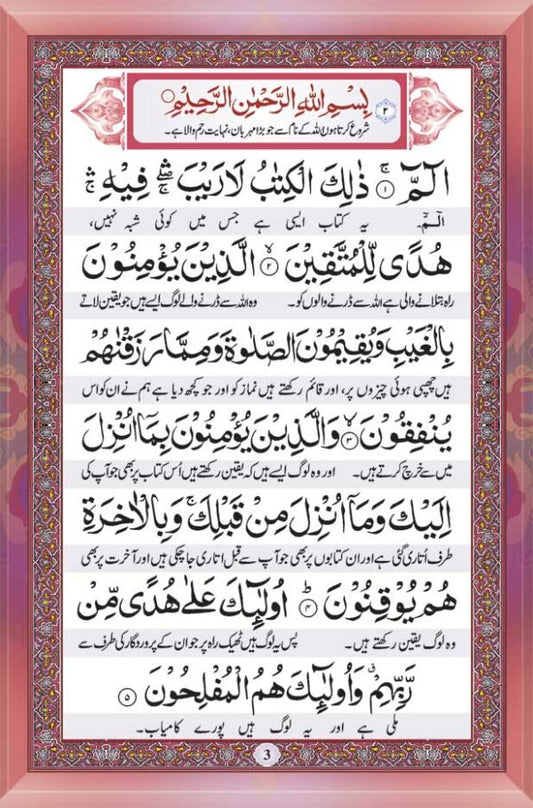 بِسْمِ اللهِ الرَّحْمٰنِ الرَّحِيْمِ ۝
۲
شروع کرتا ہوں اللہ کے نام سے جو بڑا مہربان، نہایت رحم والا ہے۔
الٓمّٓ ۚ﴿۱﴾ ذٰلِكَ الْكِتٰبُ لَا رَيْبَ ۛۚ فِيْهِ ۛۚ
الٓمّٓ۔ یہ کتاب ایسی ہے جس میں کوئی شبہ نہیں،
هُدًى لِّلْمُتَّقِيْنَ ۙ﴿۲﴾ الَّذِيْنَ يُؤْمِنُوْنَ
راہ بتلانے والی ہے اللہ سے ڈرنے والوں کو۔ وہ اللہ سے ڈرنے والے لوگ ایسے ہیں جو یقین لاتے
بِالْغَيْبِ وَيُقِيْمُوْنَ الصَّلٰوةَ وَمِمَّا رَزَقْنٰهُمْ
ہیں چھپی ہوئی چیزوں پر، اور قائم رکھتے ہیں نماز کو اور جو کچھ دیا ہے ہم نے ان کو اس
يُنْفِقُوْنَ ۙ﴿۳﴾ وَالَّذِيْنَ يُؤْمِنُوْنَ بِمَاۤ اُنْزِلَ
میں سے خرچ کرتے ہیں۔ اور وہ لوگ ایسے ہیں کہ یقین رکھتے ہیں اُس کتاب پر بھی جو آپ کی
اِلَيْكَ وَمَاۤ اُنْزِلَ مِنْ قَبْلِكَ ۚ وَبِالْاٰخِرَةِ
طرف اُتاری گئی ہے اور ان کتابوں پر بھی جو آپ سے قبل اتاری جا چکی ہیں اور آخرت پر بھی
هُمْ يُوْقِنُوْنَ ؕ﴿۴﴾ اُولٰٓئِكَ عَلٰى هُدًى مِّنْ
وہ لوگ یقین رکھتے ہیں۔ پس یہ لوگ ہیں ٹھیک راہ پر جو ان کے پروردگار کی طرف سے
رَّبِّهِمْ ۗ وَاُولٰٓئِكَ هُمُ الْمُفْلِحُوْنَ ﴿۵﴾
ملی ہے اور یہ لوگ ہیں پورے کامیاب۔
3